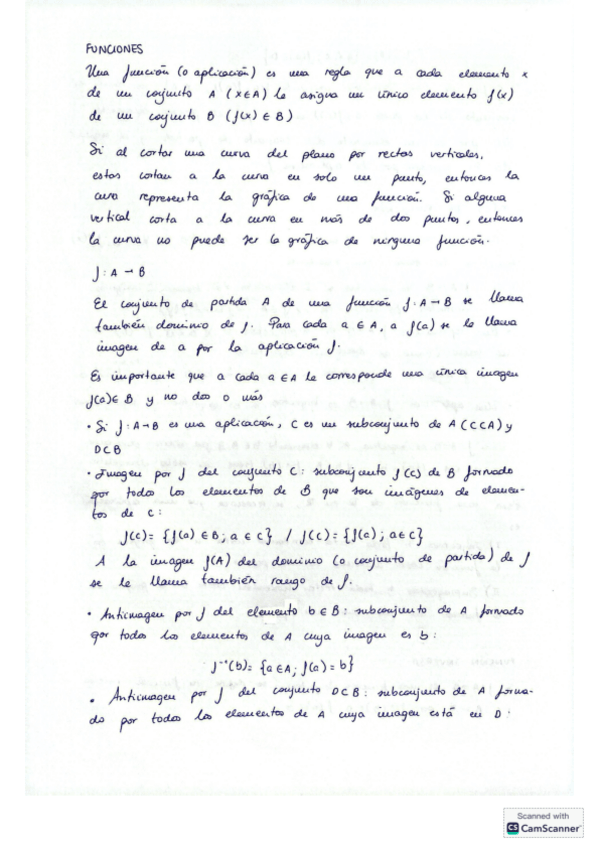 FUNCIONES
Una función (o aplicación) es una regla que a cada elemento x
de un conjunto A (x∈A) le asigna un único elemento f(x)
de un conjunto B (f(x) ∈ B)
Si al cortar una curva del plano por rectas verticales,
estas cortan a la curva en solo un punto, entonces la
curva representa la gráfica de una función. Si alguna
vertical corta a la curva en más de dos puntos, entonces
la curva no puede ser la gráfica de ninguna función.
f: A → B
El conjunto de partida A de una función f: A → B se llama
también dominio de f. Para cada a ∈ A, a f(a) se le llama
imagen de a por la aplicación f.
Es importante que a cada a ∈ A le corresponde una única imagen
f(a) ∈ B y no dos o más
· Si f: A→B es una aplicación, C es un subconjunto de A (C⊂A) y
D⊂B
· Imagen por f del conjunto C: subconjunto f(C) de B formado
por todos los elementos de B que son imágenes de elemen-
tos de C:
f(C) = {f(a) ∈ B; a ∈ C} / f(C) = {f(a); a ∈ C}
A la imagen f(A) del dominio (o conjunto de partida) de f
se le llama también rango de f.
· Antiimagen por f del elemento b ∈ B: subconjunto de A formado
por todos los elementos de A cuya imagen es b:
f⁻¹(b) = {a ∈ A; f(a) = b}
· Antiimagen por f del conjunto D⊂B: subconjunto de A forma-
do por todos los elementos de A cuya imagen está en D:
Scanned with
CS CamScanner